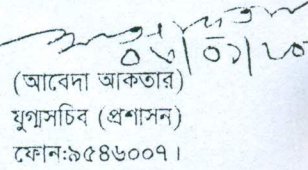 (আবেদা আকতার)
যুগ্মসচিব (প্রশাসন)
ফোন:৯৫৪৬০০৭।